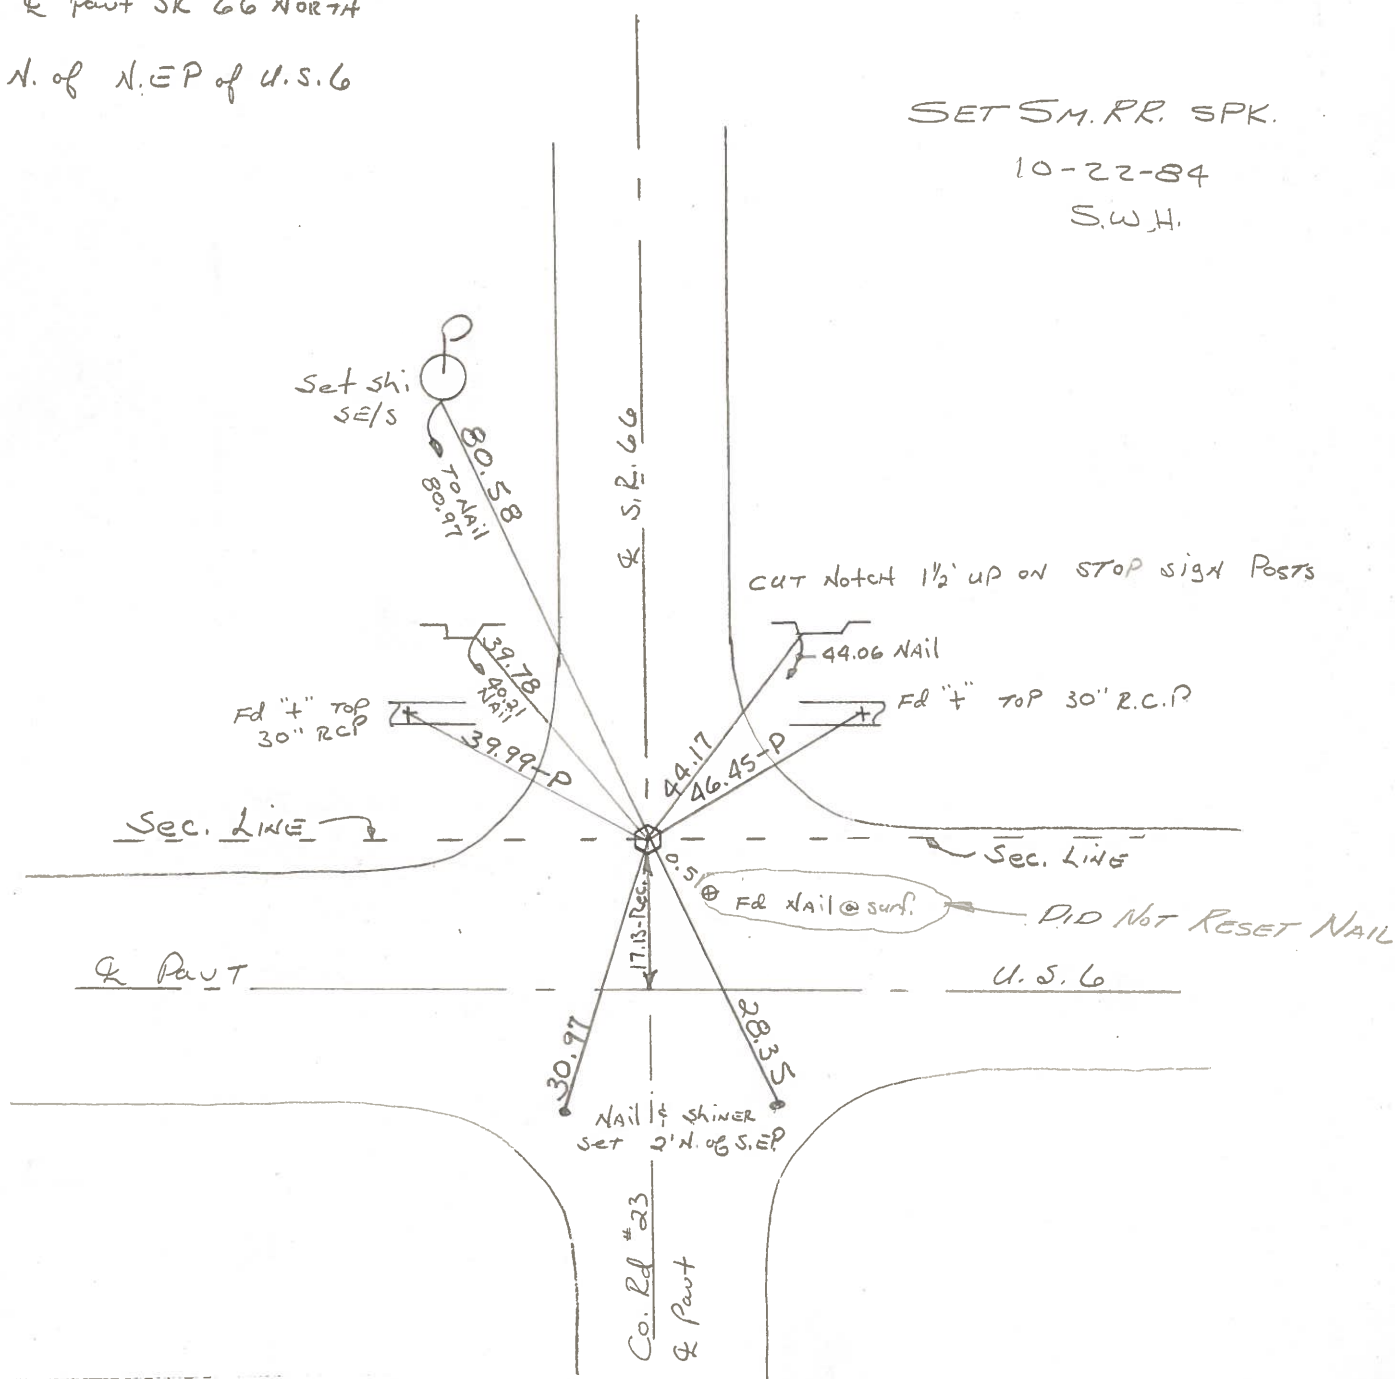 ℄ Pavt SR 66 NORTH
N. of N.EP of U.S.6
SET SM. RR. SPK.
10-22-84
S.W.H.
Set shi
SE/S
80.58
TO NAil
80.97
℄ S.R. 66
CUT NotcH 1½' UP ON STOP SigN POSTS
39.78
40.21
NAil
44.06 NAil
Fd "+" TOP
30" RCP
Fd "+" TOP 30" R.C.P
39.99-P
44.17
46.45-P
Sec. LiNE
Sec. LiNE
0.51
Fd NAil @ surf.
DID NOT RESET NAIL
17.13-Rec.
℄ PavT
U.S.6
30.97
28.35
NAil & ShiNER
Set 2' N. of S.EP.
Co. Rd #23
℄ Pavt